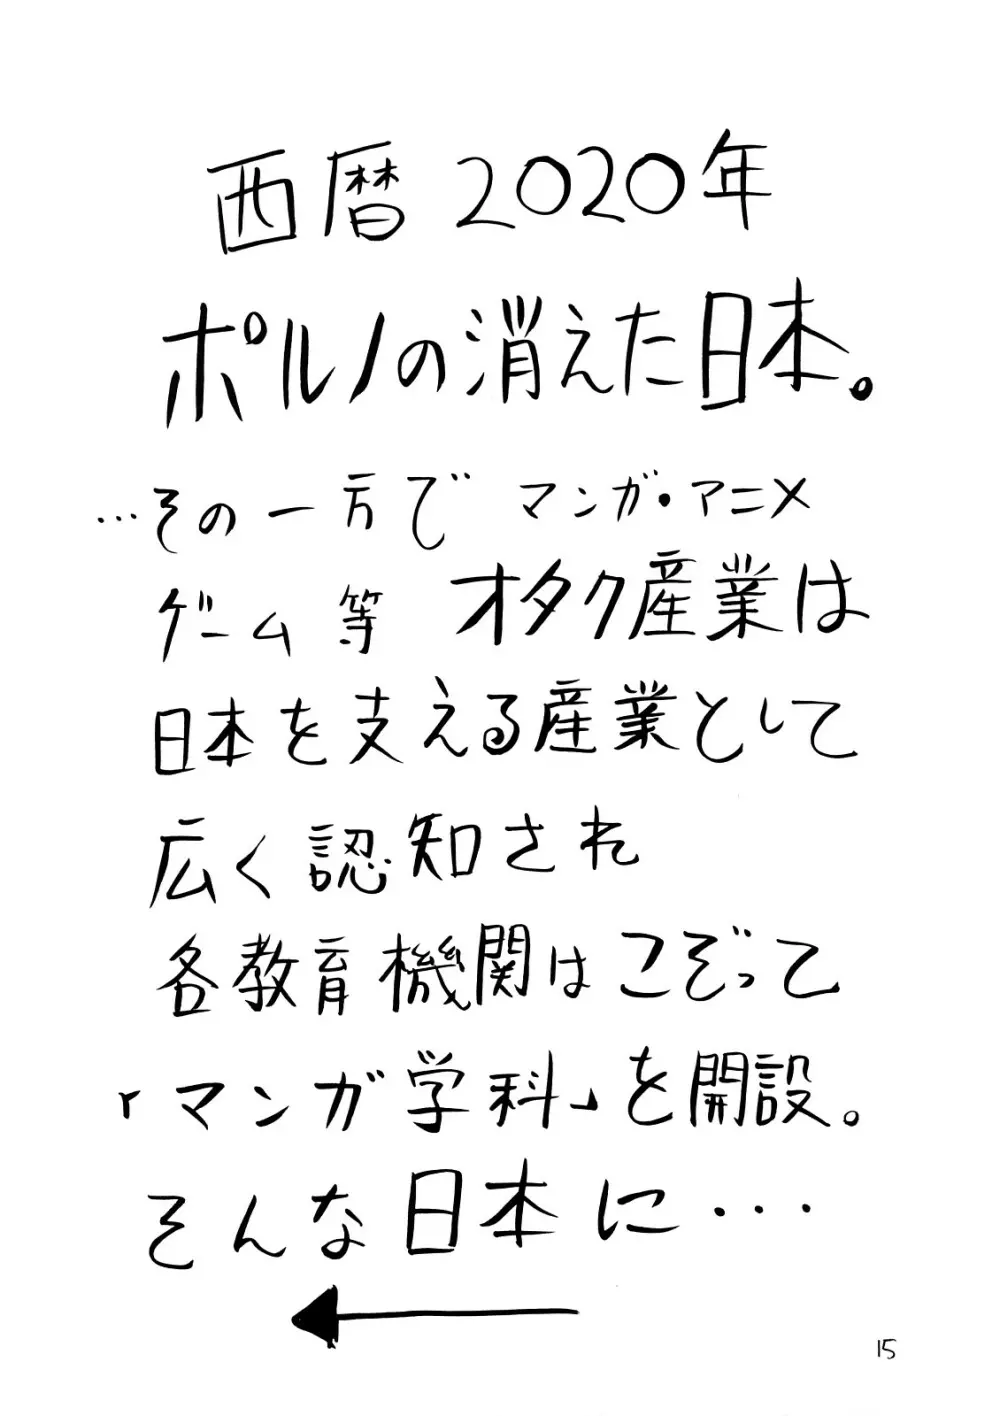 西暦2020年
ポルノの消えた日本。
…その一方で マンガ・アニメ
ゲーム等 オタク産業は
日本を支える産業として
広く認知され
各教育機関はこぞって
「マンガ学科」を開設。
そんな日本に・・・
15